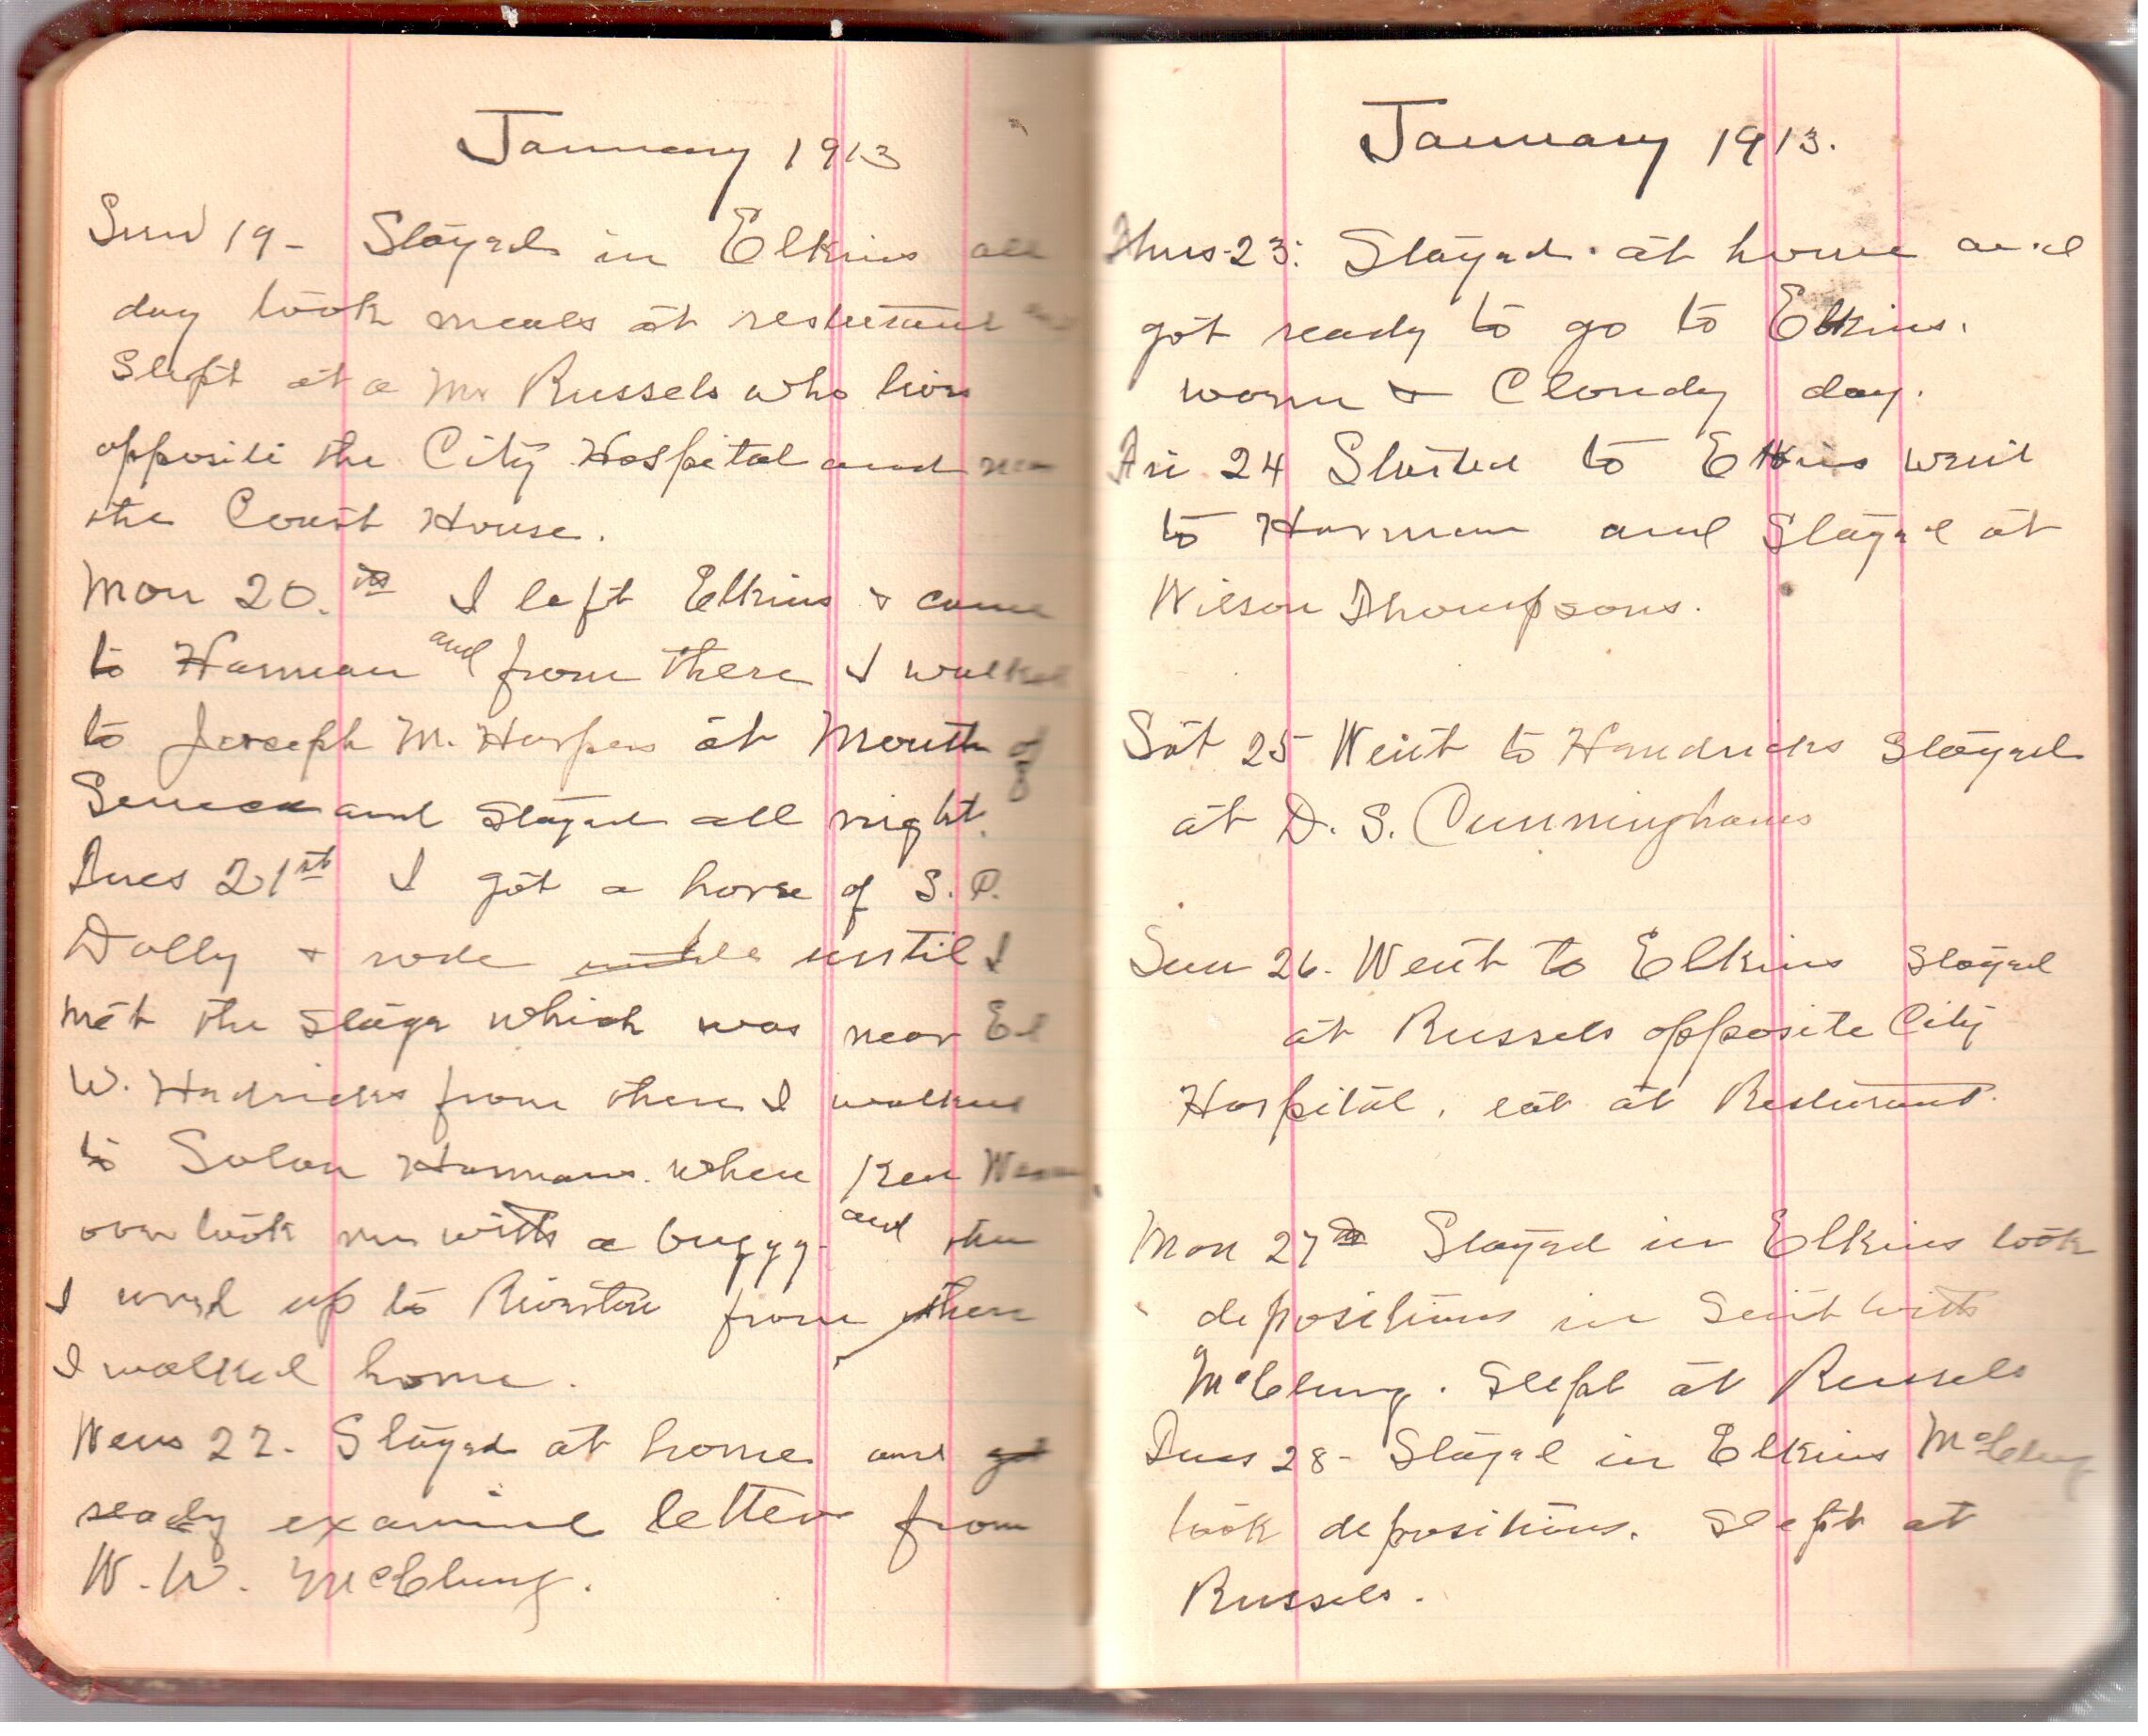 January 1913
Sun 19 - Stayed in Elkins all
day took meals at resturant and
Slept at a Mr Russels who lives
opposite the City Hospital and near
the Court House.
Mon 20.th I left Elkins & came
to Harman and from there I walked
to Joseph M. Harpers at Mouth of
Seneca and stayed all night.
Tues 21st I got a horse of S. P.
Dolly & rode until I
met the stage which was near Ed
W. Hadricks from there I walked
to Solon Harmans. where Ken
over took me with a buggy and then
I went up to Riverton from there
I walked home.
Wens 22. Stayed at home and got
ready examined letters from
W. W. McClung.
January 1913.
Thurs 23: Stayed at home and
got ready to go to Elkins.
warm & Cloudy day.
Fri 24 Started to Elkins went
to Harman and Stayed at
Wilson Thompsons.
Sat 25 Went to Hendricks stayed
at D. S. Cunninghams
Sun 26. Went to Elkins stayed
at Russels opposite City
Hospital, eat at Resturant.
Mon 27th Stayed in Elkins took
depositions in Suit with
McClung. Slept at Russels
Tues 28 - Stayed in Elkins McClung
took depositions. Slept at
Russels.